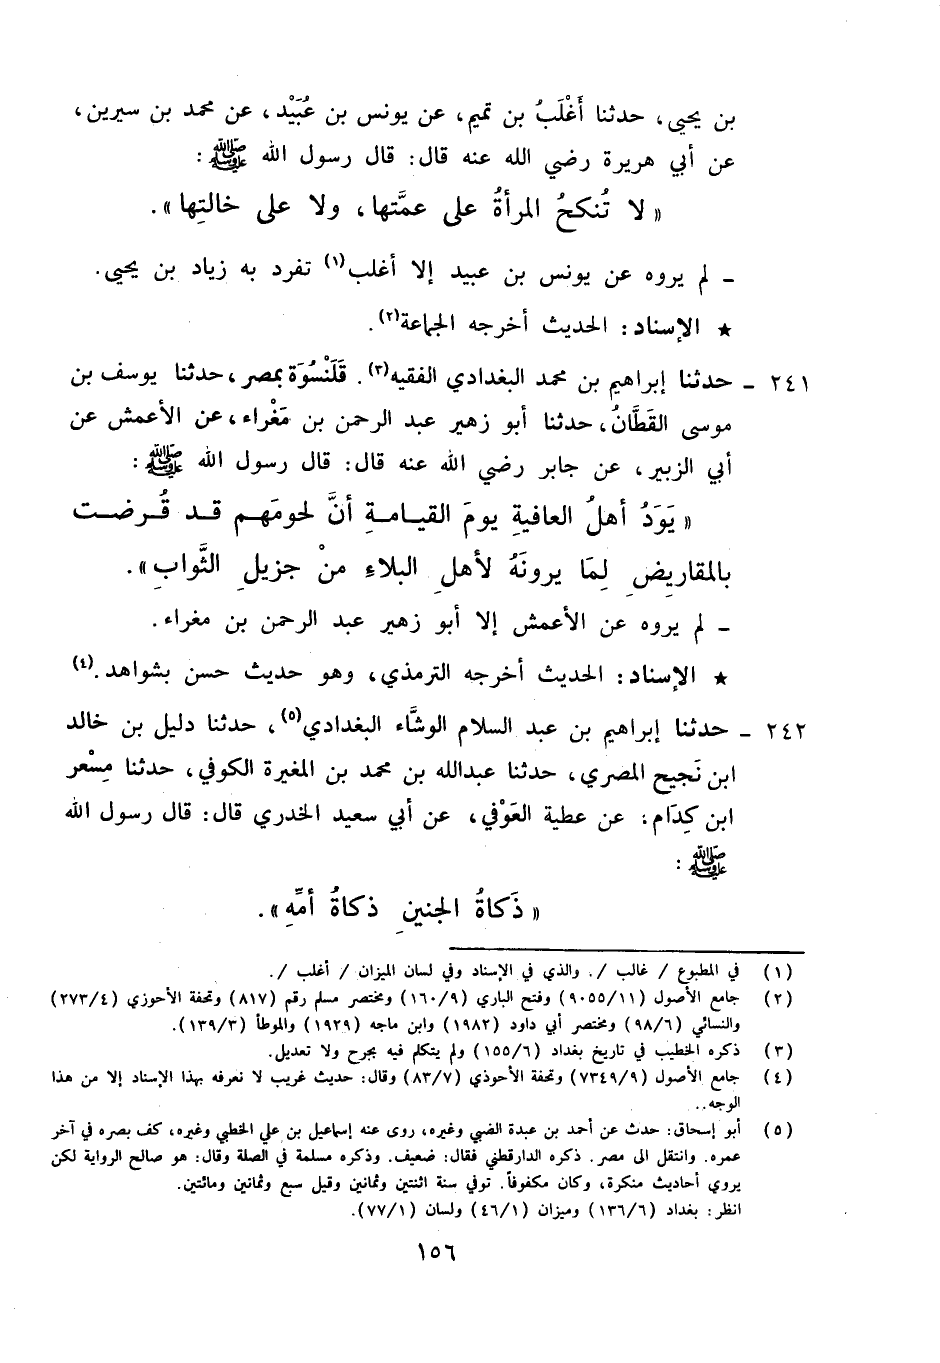 بن يحيى، حدثنا أَغْلَبُ بن تميم، عن يونس بن عُبَيْد، عن محمد بن سيرين،
عن أبي هريرة رضي الله عنه قال: قال رسول الله ﷺ :
« لا تُنكحُ المرأةُ على عمَّتها، ولا على خالتِها».
ـ لم يروه عن يونس بن عبيد إلا أغلب(١) تفرد به زياد بن يحيى.
★ الإسناد: الحديث أخرجه الجماعة(٢).
٢٤١ ـ حدثنا إبراهيم بن محمد البغدادي الفقيه(٣). قَلَنْسُوَة بمصر، حدثنا يوسف بن
موسى القَطَّانُ، حدثنا أبو زهير عبد الرحمن بن مَغْراء، عن الأعمش عن
أبي الزبير، عن جابر رضي الله عنه قال: قال رسول الله ﷺ :
« يَوَدُ أهلُ العافيةِ يومَ القيامةِ أنَّ لحومَهم قد قُرضت
بالمقاريضِ لِمَا يرونَهُ لأهلِ البلاءِ منْ جزيلِ الثَّوابِ».
ـ لم يروه عن الأعمش إلا أبو زهير عبد الرحمن بن مغراء.
★ الإسناد: الحديث أخرجه الترمذي، وهو حديث حسن بشواهد.(٤)
٢٤٢ ـ حدثنا إبراهيم بن عبد السلام الوشَّاء البغدادي(٥)، حدثنا دليل بن خالد
ابن نَجيح المصري، حدثنا عبدالله بن محمد بن المغيرة الكوفي، حدثنا مِسْعر
ابن كِدَام: عن عطية العَوْفي، عن أبي سعيد الخدري قال: قال رسول الله
ﷺ :
« ذَكاةُ الجنينِ ذكاةُ أمِّهِ».
(١) في المطبوع / غالب /. والذي في الإسناد وفي لسان الميزان / أغلب /.
(٢) جامع الأصول (٩٠٥٥/١١) وفتح الباري (١٦٠/٩) ومختصر مسلم رقم (٨١٧) وتحفة الأحوزي (٢٧٣/٤)
والنسائي (٩٨/٦) ومختصر أبي داود (١٩٨٢) وابن ماجه (١٩٢٩) والموطأ (١٣٩/٣).
(٣) ذكره الخطيب في تاريخ بغداد (١٥٥/٦) ولم يتكلم فيه بجرح ولا تعديل.
(٤) جامع الأصول (٧٣٤٩/٩) وتحفة الأحوذي (٨٣/٧) وقال: حديث غريب لا نعرفه بهذا الإسناد إلا من هذا
الوجه..
(٥) أبو إسحاق: حدث عن أحمد بن عبدة الضبي وغيره، روى عنه إسماعيل بن علي الخطبي وغيره، كف بصره في آخر
عمره. وانتقل الى مصر. ذكره الدارقطني فقال: ضعيف. وذكره مسلمة في الصلة وقال: هو صالح الرواية لكن
يروي أحاديث منكرة، وكان مكفوفاً. توفي سنة اثنتين وثمانين وقيل سبع وثمانين ومائتين.
انظر: بغداد (١٣٦/٦) وميزان (٤٦/١) ولسان (٧٧/١).
١٥٦